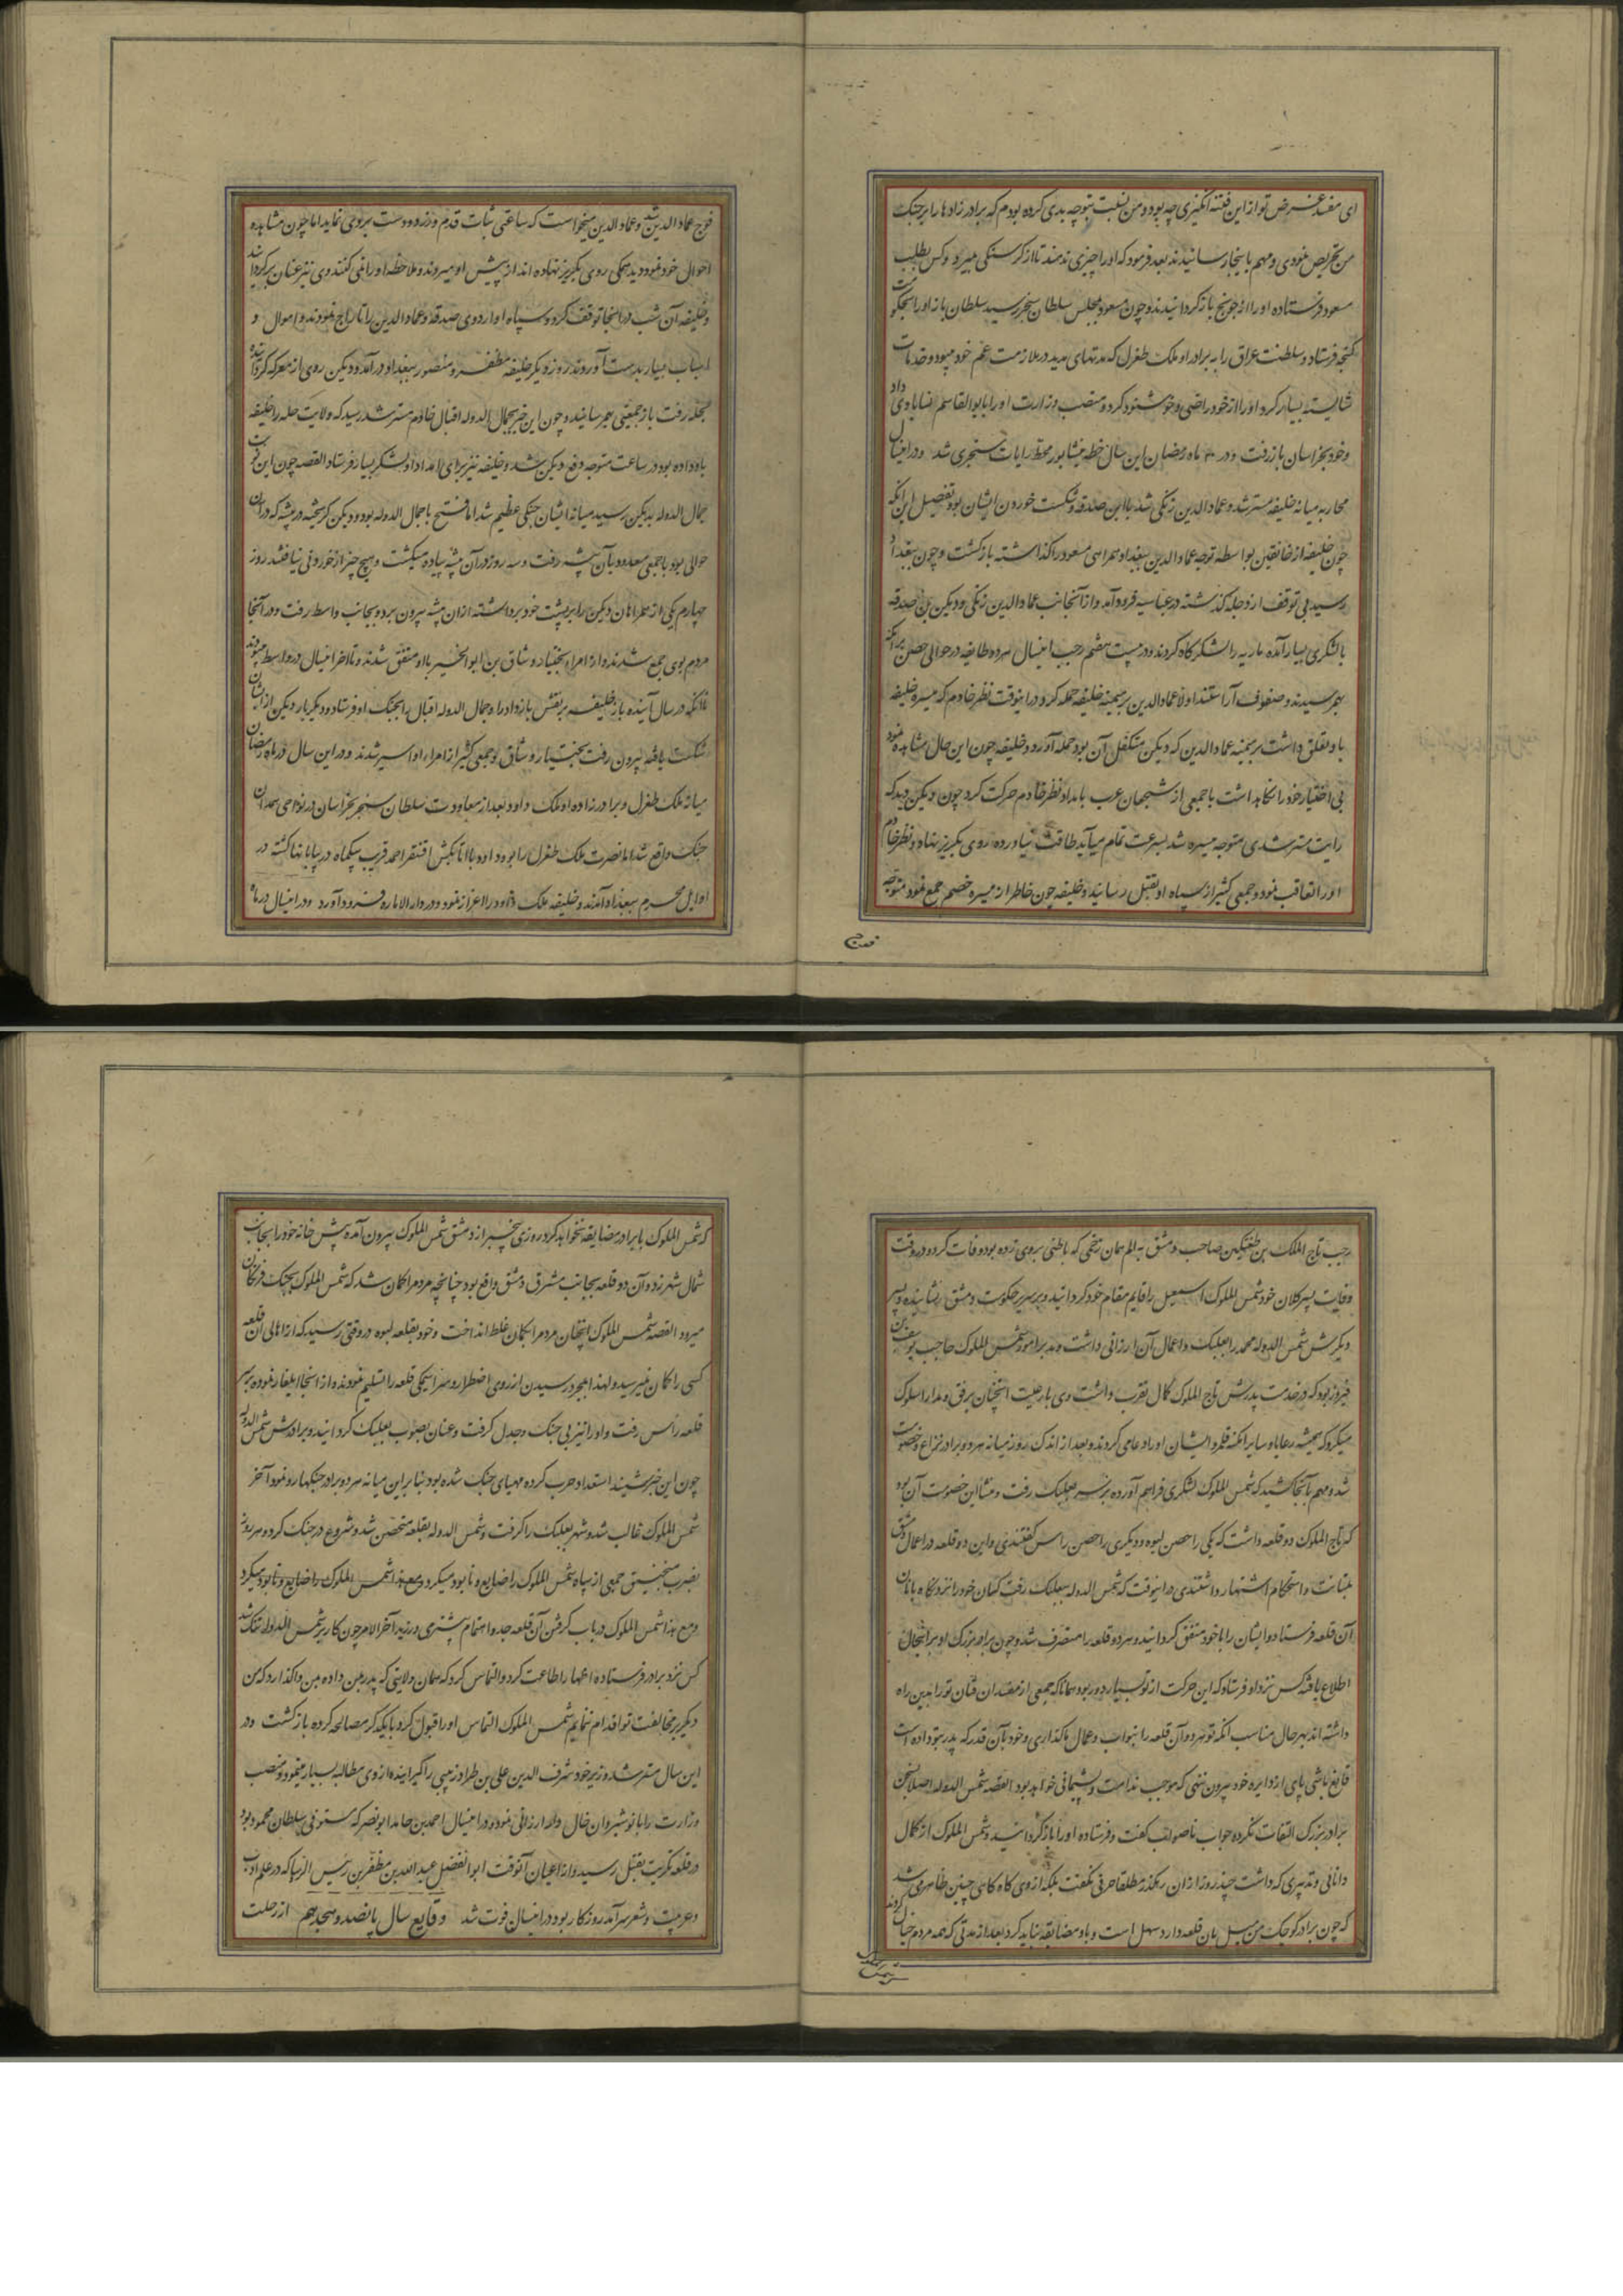 ای مفسد غرض تو از این فتنه انگیزی چه بود و من نسبت بتو چه بدی کرده بودم که برادرزادها را بر جنک
من تحریص نمودی و مهم باینجا رسانیدند بعد فرمود که او را چیزی ندهند تا از کرسنکی بمیرد و کس بطلب
مسعود فرستاده او را از جو کنج باز کردانیدند و چون مسعود بمجلس سلطان سنجر رسید سلطان باز او را بحکومت
کنجه فرستاد و سلطنت عراق را به برادر او ملک طغرل که مدتهای مدید در ملازمت عم خود میبود و خدمات
شایسته بسیار کرد و او را از خود راضی و خوشنود کرد و منصب وزارت او را بابوالقاسم انسابادی داد
و خود بخراسان باز رفت و در ۲۰ ماه رمضان این سال خطه نیشابور محط رایات سنجری شد و در اینسال
محاربه میانه خلیفه مسترشد و عمادالدین زنکی شد با ابن صدقه و شکست خوردن ایشان بود تفصیل این انکه
چون خلیفه از خانقین بواسطه توجه عمادالدین ببغداد همراهی مسعود را کذاشته باز کشت و چون ببغداد
رسید بی توقف از دجله کذشته در عباسیه فرود آمد و از آنجانب عمادالدین زنکی و دبیس بن صدقه
با لشکری بسیار آمده ماریه را لشکرکاه کردند و در بیست هفتم رجب اینسال هر دو طایفه در حوالی حصن برامکه
بهم رسیدند و صفوف آراستند اولا عمادالدین بر میمنه خلیفه حمله کرد در اینوقت نظر خادم که میسره خلیفه
باو تعلق داشت بر میمنه عمادالدین که دبیس متکفل آن بود حمله آورد و خلیفه چون این حال مشاهده نمود
بی اختیار خود را نکاه داشت با جمعی از شجعان عرب بامداد نظر خادم حرکت کرد چون دبیس دید که
رایت مسترشدی متوجه میسره شد بسرعت تمام میآید طاقت نیاورده روی بکریز نهاد و نظر خادم
او را تعاقب نمود و جمعی کثیر از سپاه او بقتل رسانید و خلیفه چون خاطر از میسره خصم جمع نمود متوجه
فوج
فوج عمادالدین شد و عمادالدین میخواست که ساعتی ثبات قدم ورزد و دست بردی نماید اما چون مشاهده
احوال خود نمود دید همکی روی بکریز نهاده اند از پیش او میروند و ملاحظه او را نمی کنند وی نیز عنان بر کردانید
و خلیفه آن شب در انجا توقف کرد و سپاه او اردوی صدقه و عمادالدین را تاراج نمودند و اموال و
اسباب بسیار بدست آوردند روز دیکر خلیفه مظفر و منصور ببغداد در آمد و دبیس روی از معرکه کردانیده
بحله رفت باز جمعیتی بهم رسانید و چون این خبر بجمال الدوله اقبال خادم مسترشد رسید که ولایت حله را خلیفه
باو داده بود در ساعت متوجه دفع دبیس شد و خلیفه نیز برای امداد او لشکر بسیار فرستاد القصه چون این
جمال الدوله بدبیس رسید میانه ایشان جنکی عظیم شد اما فتح با جمال الدوله بود و دبیس کریخته در بیشه که در ان
حوالی بود با جمعی معدود بآن بیشه رفت و سه روز در آن بیشه پیاده میکشت و هیچ چیز از خوردنی نیافتند روز
چهارم یکی از همراهان دبیس را بر پشت خود برداشته از ان بیشه بیرون برد و بجانب واسط رفت و در آنجا
مردم بوی جمع شدند و از امراء بختیار وشاق بن ابوالخیر با او متفق شدند و تا اخر اینسال در واسط میبودند
تا انکه در سال آینده باز خلیفه برنقش بازدار را و جمال الدوله اقبال را بجنک او فرستاد و دیکر بار دبیس از ایشان
شکست یافته بیرون رفت بختیار وشاق و جمعی کثیر از امراء او اسیر شدند و در این سال در ماه رمضان
میانه ملک طغرل و برادرزاده او ملک داود بعد از معاودت سلطان سنجر بخراسان در نواحی همدان
جنک واقع شد اما نصرت ملک طغرل را بود و داود با اتابکش اقسنقر احمد قریب یکماه در بیابانها کشته در
اوایل محرم ببغداد آمدند و خلیفه ملک داود را اعزاز نمود و در دارالاماره فرود آورد و در اینسال در ماه
رجب تاج الملک بن طغتکین صاحب دمشق به الم همان زخمی که باطنی بروی زده بود وفات کرد و در وقت
وفات پسر کلان خود شمس الملوک اسمعیل را قایم مقام خود کردانید و بر سریر حکومت دمشق نشانیده و پسر
دیکرش شمس الدوله محمد را بعلبک و اعمال آن ارزانی داشت و مدبر امور شمس الملوک حاجب یوسف بن
فیروز بود که در خدمت پدرش تاج الملوک کمال تقرب داشت وی با رعیت انچنان برفق و مدارا سلوک
میکرد که همیشه رعایا و سایر اکنه قلمرو ایشان او را دعا می کردند و بعد از اندک روز میانه هر دو برادر نزاع و خصومت
شد و مهم بآنجا کشید که شمس الملوک لشکری فراهم آورده بر سر بعلبک رفت و منشأ این خصومت آن بود
که تاج الملوک دو قلعه داشت که یکی را حصن لبوه و دیکری را حصن راس کفتندی و این دو قلعه در اعمال دمشق
بمتانت و استحکام اشتهار داشتندی در اینوقت که شمس الدوله ببعلبک رفت کسان خود را نزد نکاهبانان
آن قلعه فرستاد و ایشان را با خود متفق کردانید و هر دو قلعه را متصرف شد و چون برادر بزرک او بر اینحال
اطلاع یافته کس نزد او فرستاد که این حرکت از تو بسیار دور بود همانا که جمعی از مفسدان فتان تو را بدین راه
داشته اند بهر حال مناسب انکه تو هر دو آن قلعه را بنواب و عمال ما کذاری و خود بآن قدر که پدر بتو داده است
قانع باشی پای از دایره خود بیرون ننهی که موجب ندامت و پشیمانی خواهد بود القصه شمس الدوله اصلا بسخن
برادر بزرک التفات نکرده جواب ناصواب کفت و فرستاده او را باز کردانید و شمس الملوک از کمال
دانائی و تدبیری که داشت چند روز از ان رهکذر مطلقا حرفی نکفت بلکه از وی کاه کاهی چنین ظاهر می شد
که چون برادر کوچک من میل بان قلعه دارد سهل است و باو مضایقه نباید کرد بعد از مدتی که همه مردم خیال کردند
که شمس الملوک
که شمس الملوک با برادر مضایقه نخواهد کرد روزی بیخبر از دمشق شمس الملوک بیرون آمده پیش خانه خود را بجانب
شمال شهر زد و آن دو قلعه بجانب مشرق دمشق واقع بود چنانچه مردم را کمان شد که شمس الملوک بجنک فرنکان
میرود القصه شمس الملوک انچنان مردم را بکمان غلط انداخت و خود بقلعه لبوه در وقتی رسید که از اهالی آن قلعه
کسی را کمان نمیرسید و لهذا بمجرد رسیدن از روی اضطرار و سراسیمکی قلعه را تسلیم نمودند و از انجا ایلغار نموده بر سر
قلعه راس رفت و او را نیز بی جنک و جدل کرفت و عنان بصوب بعلبک کردانید و برادرش شمس الدوله
چون این خبر شنید استعداد حرب کرده مهیای جنک شده بود بنا بر این میانه هر دو برادر جنکها رو نمود آخر
شمس الملوک غالب شد و شهر بعلبک را کرفت و شمس الدوله بقلعه متحصن شد و شروع در جنک کرد و هر روز
بضرب منجنیق جمعی از سپاه شمس الملوک را ضایع و نابود میکرد و مع هذا شمس الملوک را ضایع و نابود میکرد
و مع هذا شمس الملوک در باب کرفتن آن قلعه جد و اهتمام بیشتری ورزید آخر الامر چون کار بر شمس الدوله تنک شد
کس نزد برادر فرستاده اظهار اطاعت کرد و التماس کرد که همان ولایتی که پدر بمن داده بمن واکذارد که من
دیکر بر مخالفت تو اقدام ننمایم شمس الملوک التماس او را قبول کرد با یکدیکر مصالحه کرده باز کشت و در
این سال مسترشد وزیر خود شرف الدین علی بن طراد زینبی را کیرانیده از وی مطالبه بسیار نمود و منصب
وزارت را بانوشیروان خال ولد ارزانی نمود و در اینسال احمد بن حامد ابونصر که مستوفی سلطان محمود بود
در قلعه تکریت بقتل رسید و از اعیان آنوقت ابوالفضل عبدالله بن مظفر بن رئیس الرؤسا که در علم ادب
و عربیت و شعر سرآمد روزکار بود در اینسال فوت شد وقایع سال پانصد و هجدهم از رحلت